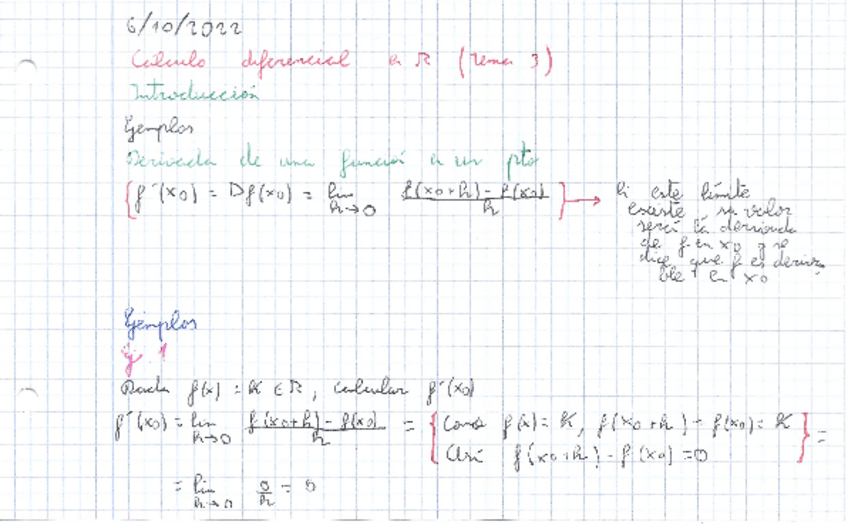 6/10/2022
Calculo diferencial en R (Tema 3)
Introducción
Ejemplos
Derivada de una función en un pto
{f'(x0) = Df(x0) = lim h→0 f(x0+h) - f(x0) / h} → Si este límite
existe, su valor
será la derivada
de f en x0 y se
dice que f es deriva
ble en x0
Ejemplos
Ej. 1
Dada f(x) = K ∈ R, calcular f'(x0)
f'(x0) = lim h→0 f(x0+h) - f(x0) / h = {Como f(x) = K, f(x0+h) = f(x0) = K
Así f(x0+h) - f(x0) = 0} =
= lim h→0 0/h = 0